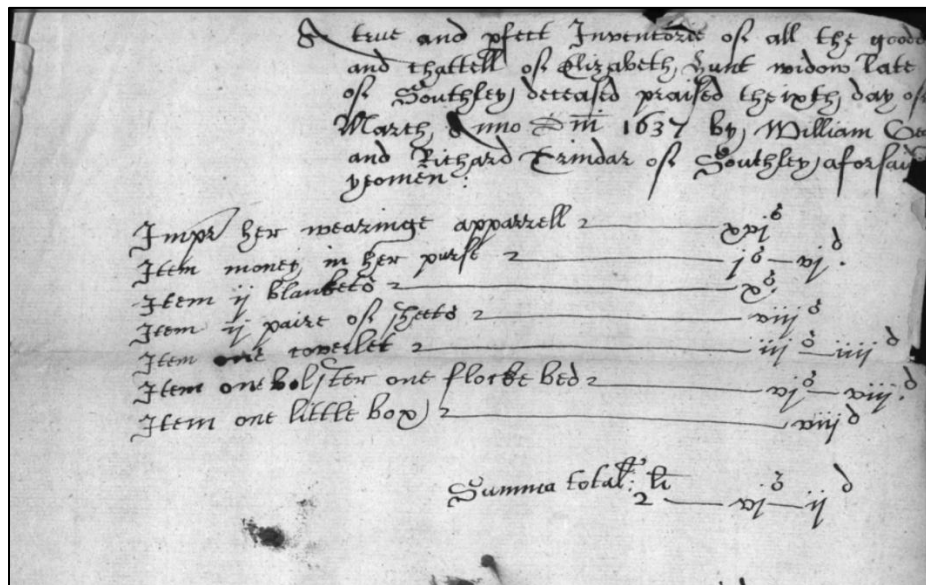 A true and pfect Inventorie of all the goode
and chattell of Elizabeth Hunt widow late
of Southley deceased praised the ixth day of
March Anno Dni 1637 by William
and Richard Crindar of Southley aforsaid
yeomen:
Impr her wearinge apparrell xvjs
Item money in her purse js vjd.
Item ij blankets xs.
Item ij paire of sheets viijs
Item one coverlet iijs iiijd
Item one bolster one flocke bed vjs viijd.
Item one little box viijd
Summa total: li
2 vjs ijd